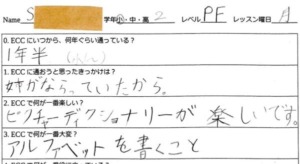 Name S 学年 小・中・高 2 レベル PF レッスン曜日 月
0. ECCにいつから、何年ぐらい通っている？
1年半
1. ECCに通おうと思ったきっかけは？
姉がならっていたから。
2. ECCで何が一番楽しい？
ピクチャーディクショナリーが楽しいです。
3. ECCで何が一番大変？
アルファベットを書くこと